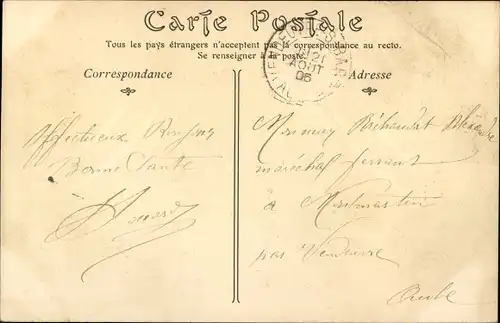 Carte Postale
Tous les pays étrangers n'acceptent pas la correspondance au recto.
Se renseigner à la poste.
Correspondance
Adresse
VENDEUVRE-S-BARSE
21
AOUT
06
AUBE
Affectueux Bonjour
Bonne Santé
Monsieur
maréchal ferrant
à
par Vendeuvre
Aube